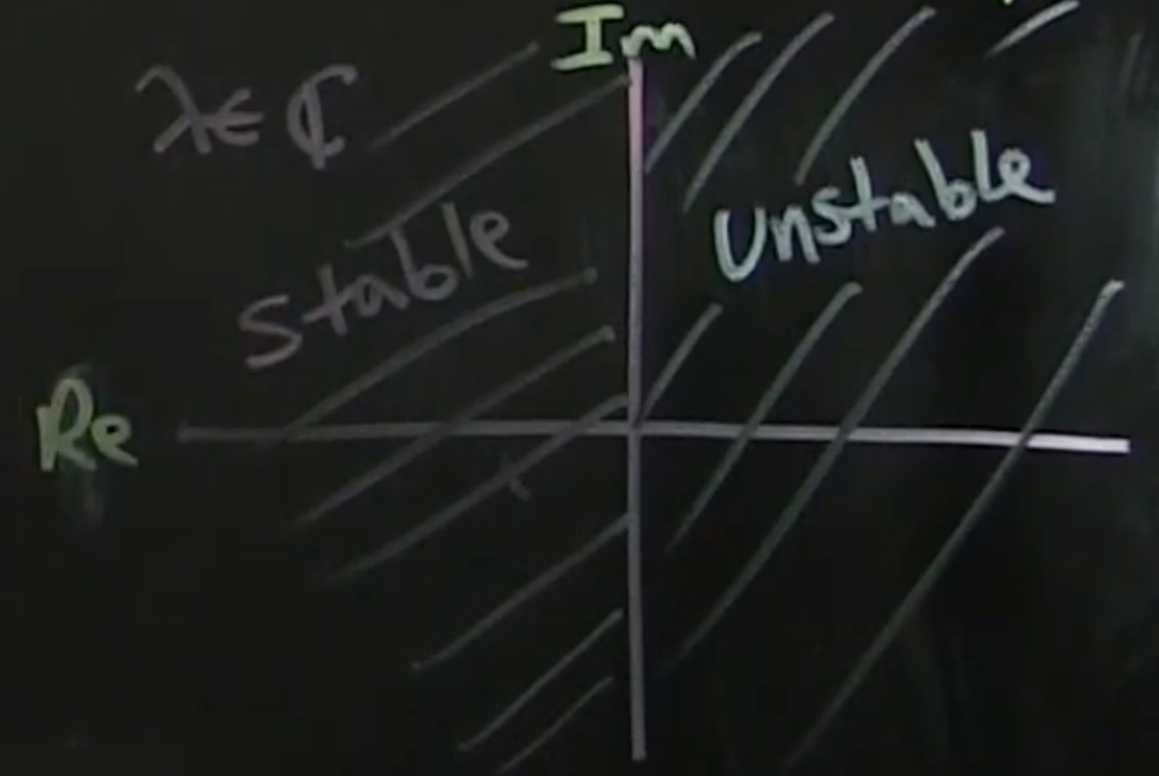 Im
λ ∈ ℂ
Unstable
Stable
Re